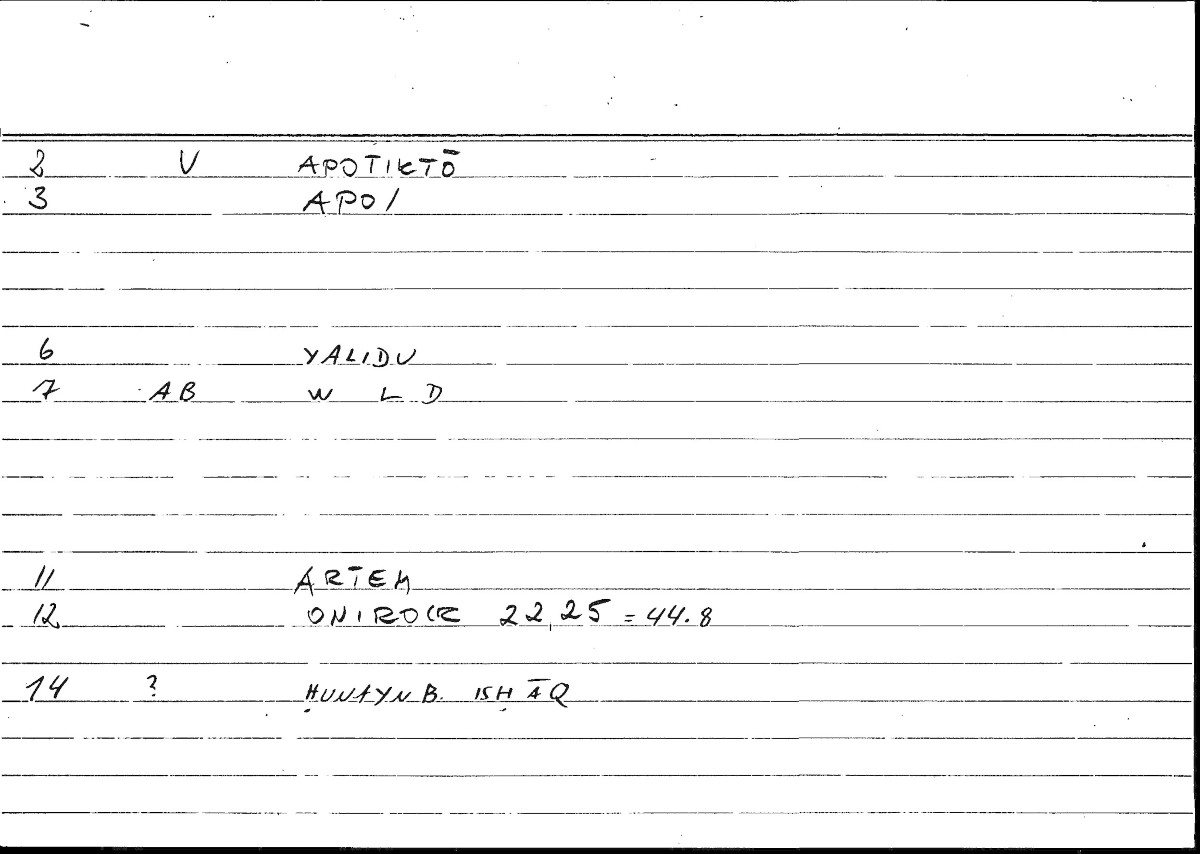 2 V APOTIKTŌ
3 APO/
6 YALIDU
7 AB W L D
11 ARTEM
12 ONIROCR 22,25 = 44.8
14 ? ḤUNAYN B. ISḤĀQ